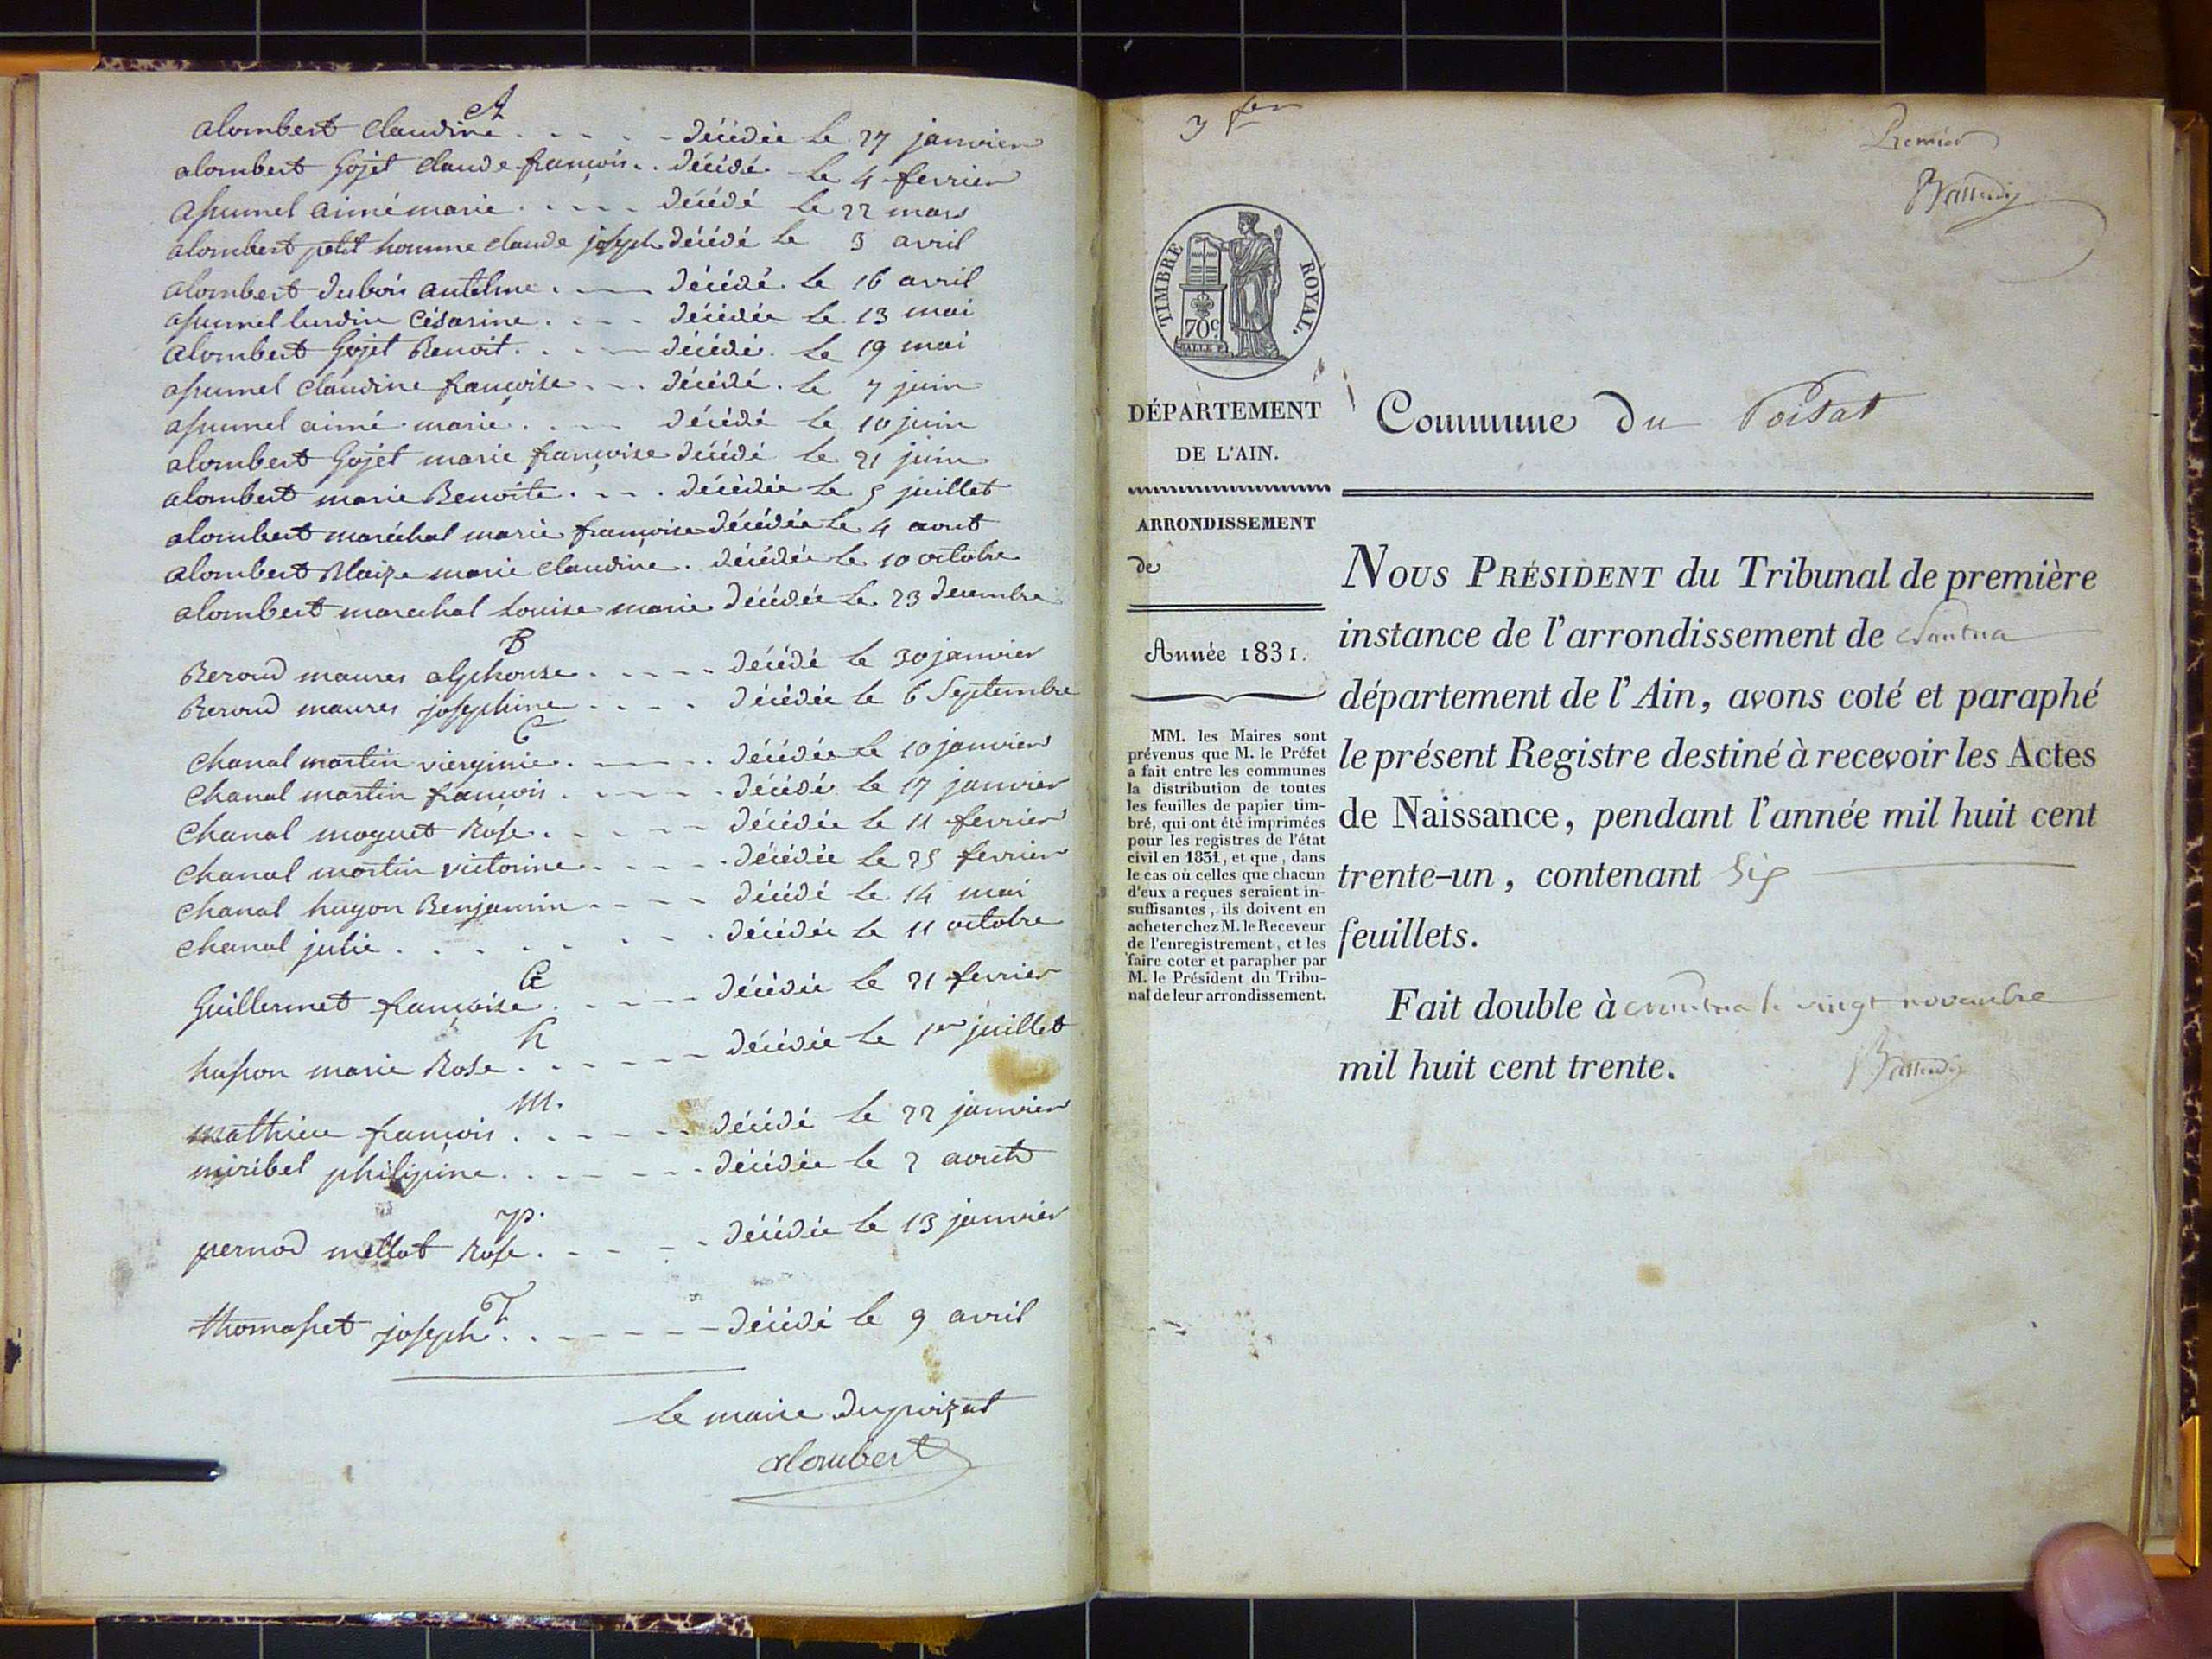 A
alombert claudine . . . . - décédée le 27 janvier
alombert gojet claude françois . . décédé le 4 fevrier
assumel aimé marie . . . . décédé le 22 mars
alombert petit homme claude joseph décédé le 3 avril
alombert dubois antelme . — décédé le 16 avril
assumel lurdin Césarine . . . décédée le 13 mai
alombert gojet Benoit . . . décédé le 19 mai
assumel claudine françoise . . . décédé le 7 juin
assumel aimé marie . . . décédé le 10 juin
alombert gojet marie françoise décédé le 21 juin
alombert marie Benoite . . . décédée le 5 juillet
alombert maréchal marie françoise décédée le 4 aout
alombert Blaize marie claudine . décédée le 10 octobre
alombert marechal louise marie décédée le 23 decembre
B
Beroud maures alphonse . . . . décédé le 30 janvier
Beroud maures josephine . . . . décédée le 6 Septembre
C
chanal martin vierginie . . . . décédée le 10 janvier
chanal martin françois . . . . décédé le 17 janvier
chanal moguet Rose . . . . décédée le 11 fevrier
chanal martin victorine . . . . décédée le 25 fevrier
chanal hugon Benjamin . . . . décédé le 14 mai
chanal julie . . . . . . décédée le 11 octobre
G
Guillermet françoise . . . . décédée le 21 fevrier
h
husson marie Rose . . . . . décédée le 1er juillet
m.
mathieu françois . . . . . décédé le 22 janvier
miribel philipine . . . . . décédée le 2 aout
p.
pernod mellat Rose . . . . . décédée le 13 janvier
T
thomasset joseph . . . . . décédé le 9 avril
le maire du poizat
alombert
Premier
TIMBRE ROYAL.
70c
DÉPARTEMENT
DE L'AIN.
ARRONDISSEMENT
de
Année 1831.
MM. les Maires sont
prévenus que M. le Préfet
a fait entre les communes
la distribution de toutes
les feuilles de papier tim-
bré, qui ont été imprimées
pour les registres de l'état
civil en 1831, et que, dans
le cas où celles que chacun
d'eux a reçues seraient in-
suffisantes, ils doivent en
acheter chez M. le Receveur
de l'enregistrement, et les
faire coter et parapher par
M. le Président du Tribu-
nal de leur arrondissement.
Commune du Poisat
NOUS PRÉSIDENT du Tribunal de première
instance de l'arrondissement de Nantua
département de l'Ain, avons coté et paraphé
le présent Registre destiné à recevoir les Actes
de Naissance, pendant l'année mil huit cent
trente-un, contenant Six
feuillets.
Fait double à Nantua le vingt novembre
mil huit cent trente.